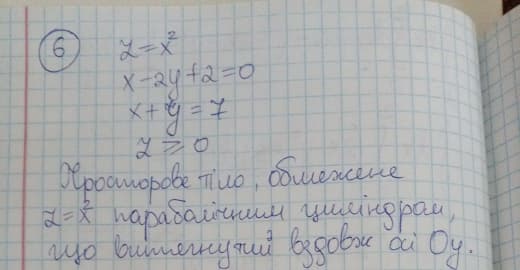 6
z=x²
x-2y+2=0
x+y=7
z≥0
Просторове тіло, обмежене
z=x² параболічним циліндром,
що витягнутий вздовж осі Oy.